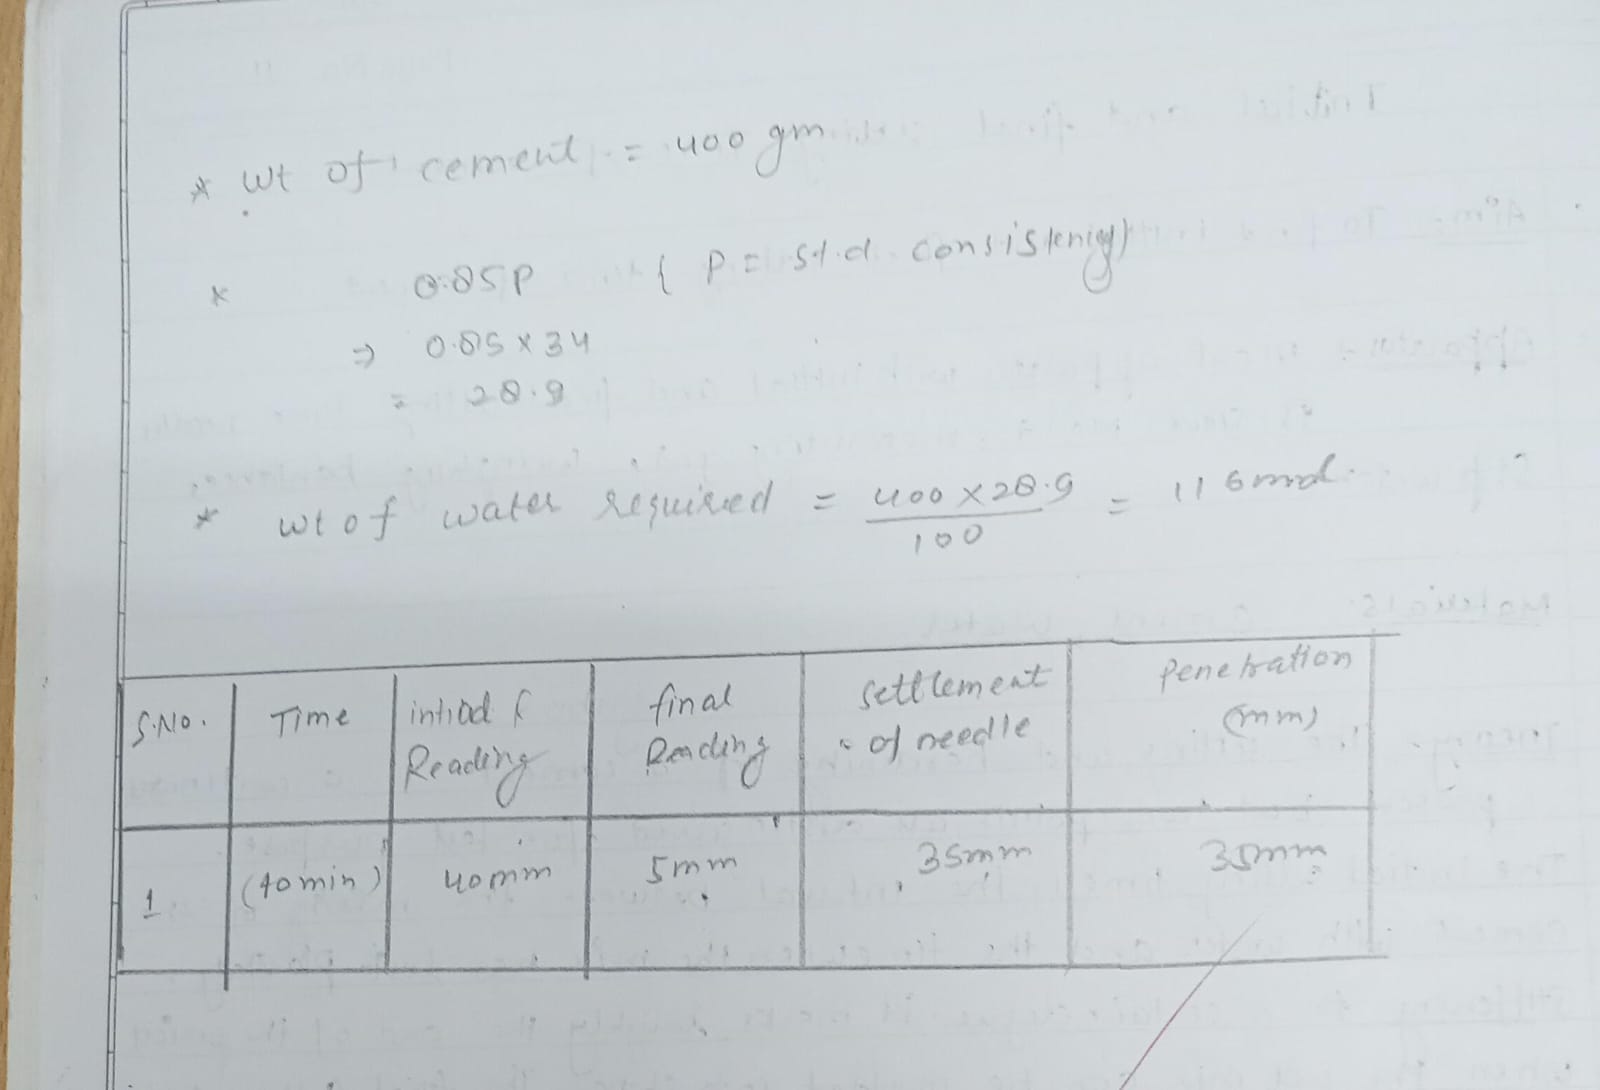 * Wt of cement = 400 gm
* 0.85P { P = std. consistency}
⇒ 0.85 x 34
= 28.9
* wt of water required = 400 x 28.9 / 100 = 116ml
S.No. Time intial Reading final Reading settlement of needle Penetration (mm)
1 (40min) 40mm 5mm 35mm 35mm